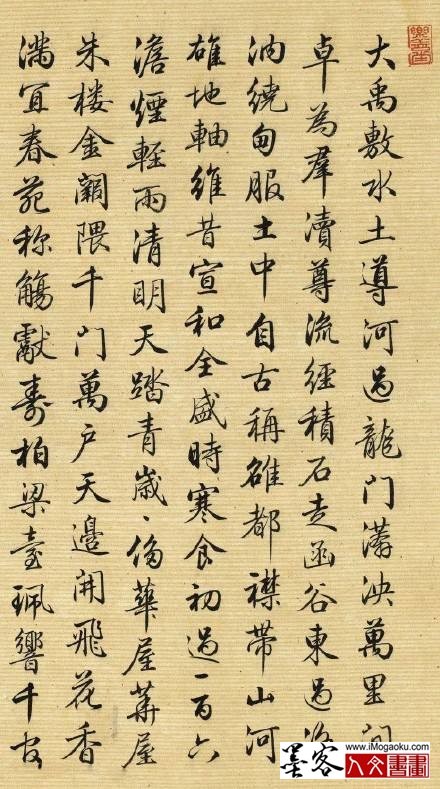 大禹敷水土導河過龍門漭泱萬里間
卓為羣瀆尊流經積石走函谷東過洛
汭繞甸服土中自古稱雒都襟帶山河
雄地軸維昔宣和全盛時寒食初過一百六
澹煙輕雨清明天踏青歲〻侈華屋華屋
朱楼金闕隈千門萬户天邊開飛花香
滿宜春苑称觴獻壽柏梁臺珮響千官
www.iMogaoku.com
墨客
人文書畫